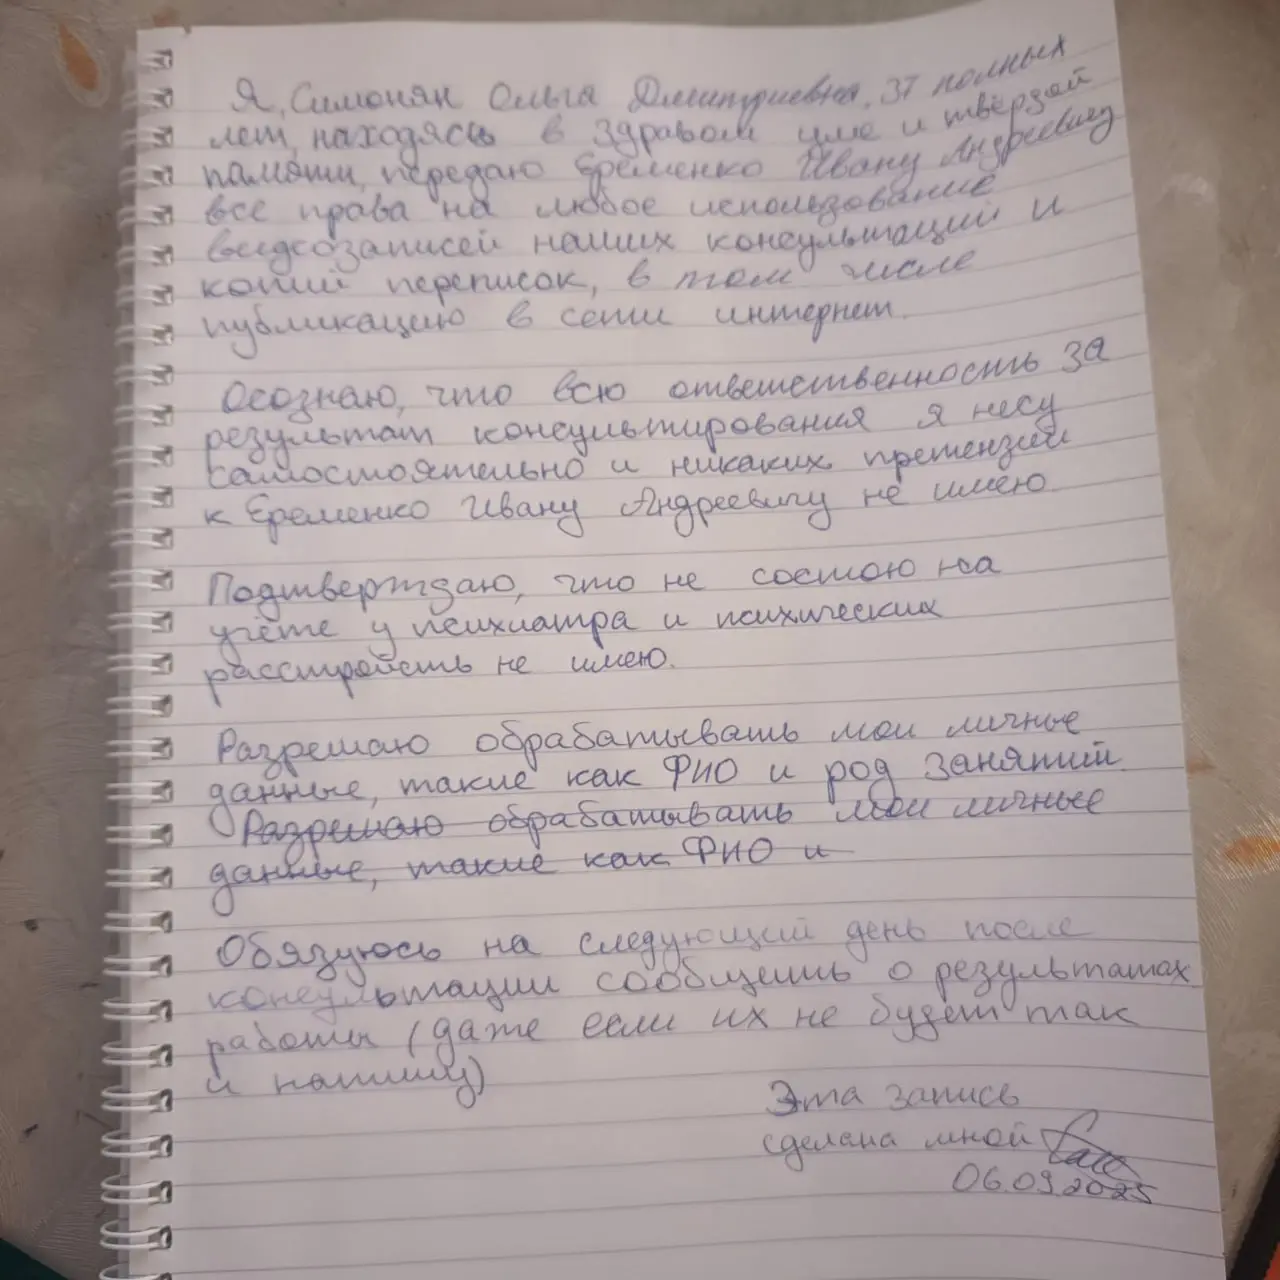 Я, Симонян Ольга Дмитриевна, 37 полных
лет, находясь в здравом уме и твёрдой
памяти, передаю Еременко Ивану Андреевичу
все права на любое использование
видеозаписей наших консультаций и
копий переписок, в том числе
публикацию в сети интернет.
Осознаю, что всю ответственность за
результат консультирования я несу
самостоятельно и никаких претензий
к Еременко Ивану Андреевичу не имею.
Подтверждаю, что не состою на
учёте у психиатра и психических
расстройств не имею.
Разрешаю обрабатывать мои личные
данные, такие как ФИО и род занятий.
Разрешаю обрабатывать мои личные
данные, такие как ФИО и
Обязуюсь на следующий день после
консультации сообщить о результатах
работы (даже если их не будет так
и напишу)
Эта запись
сделана мной
06.09.2025